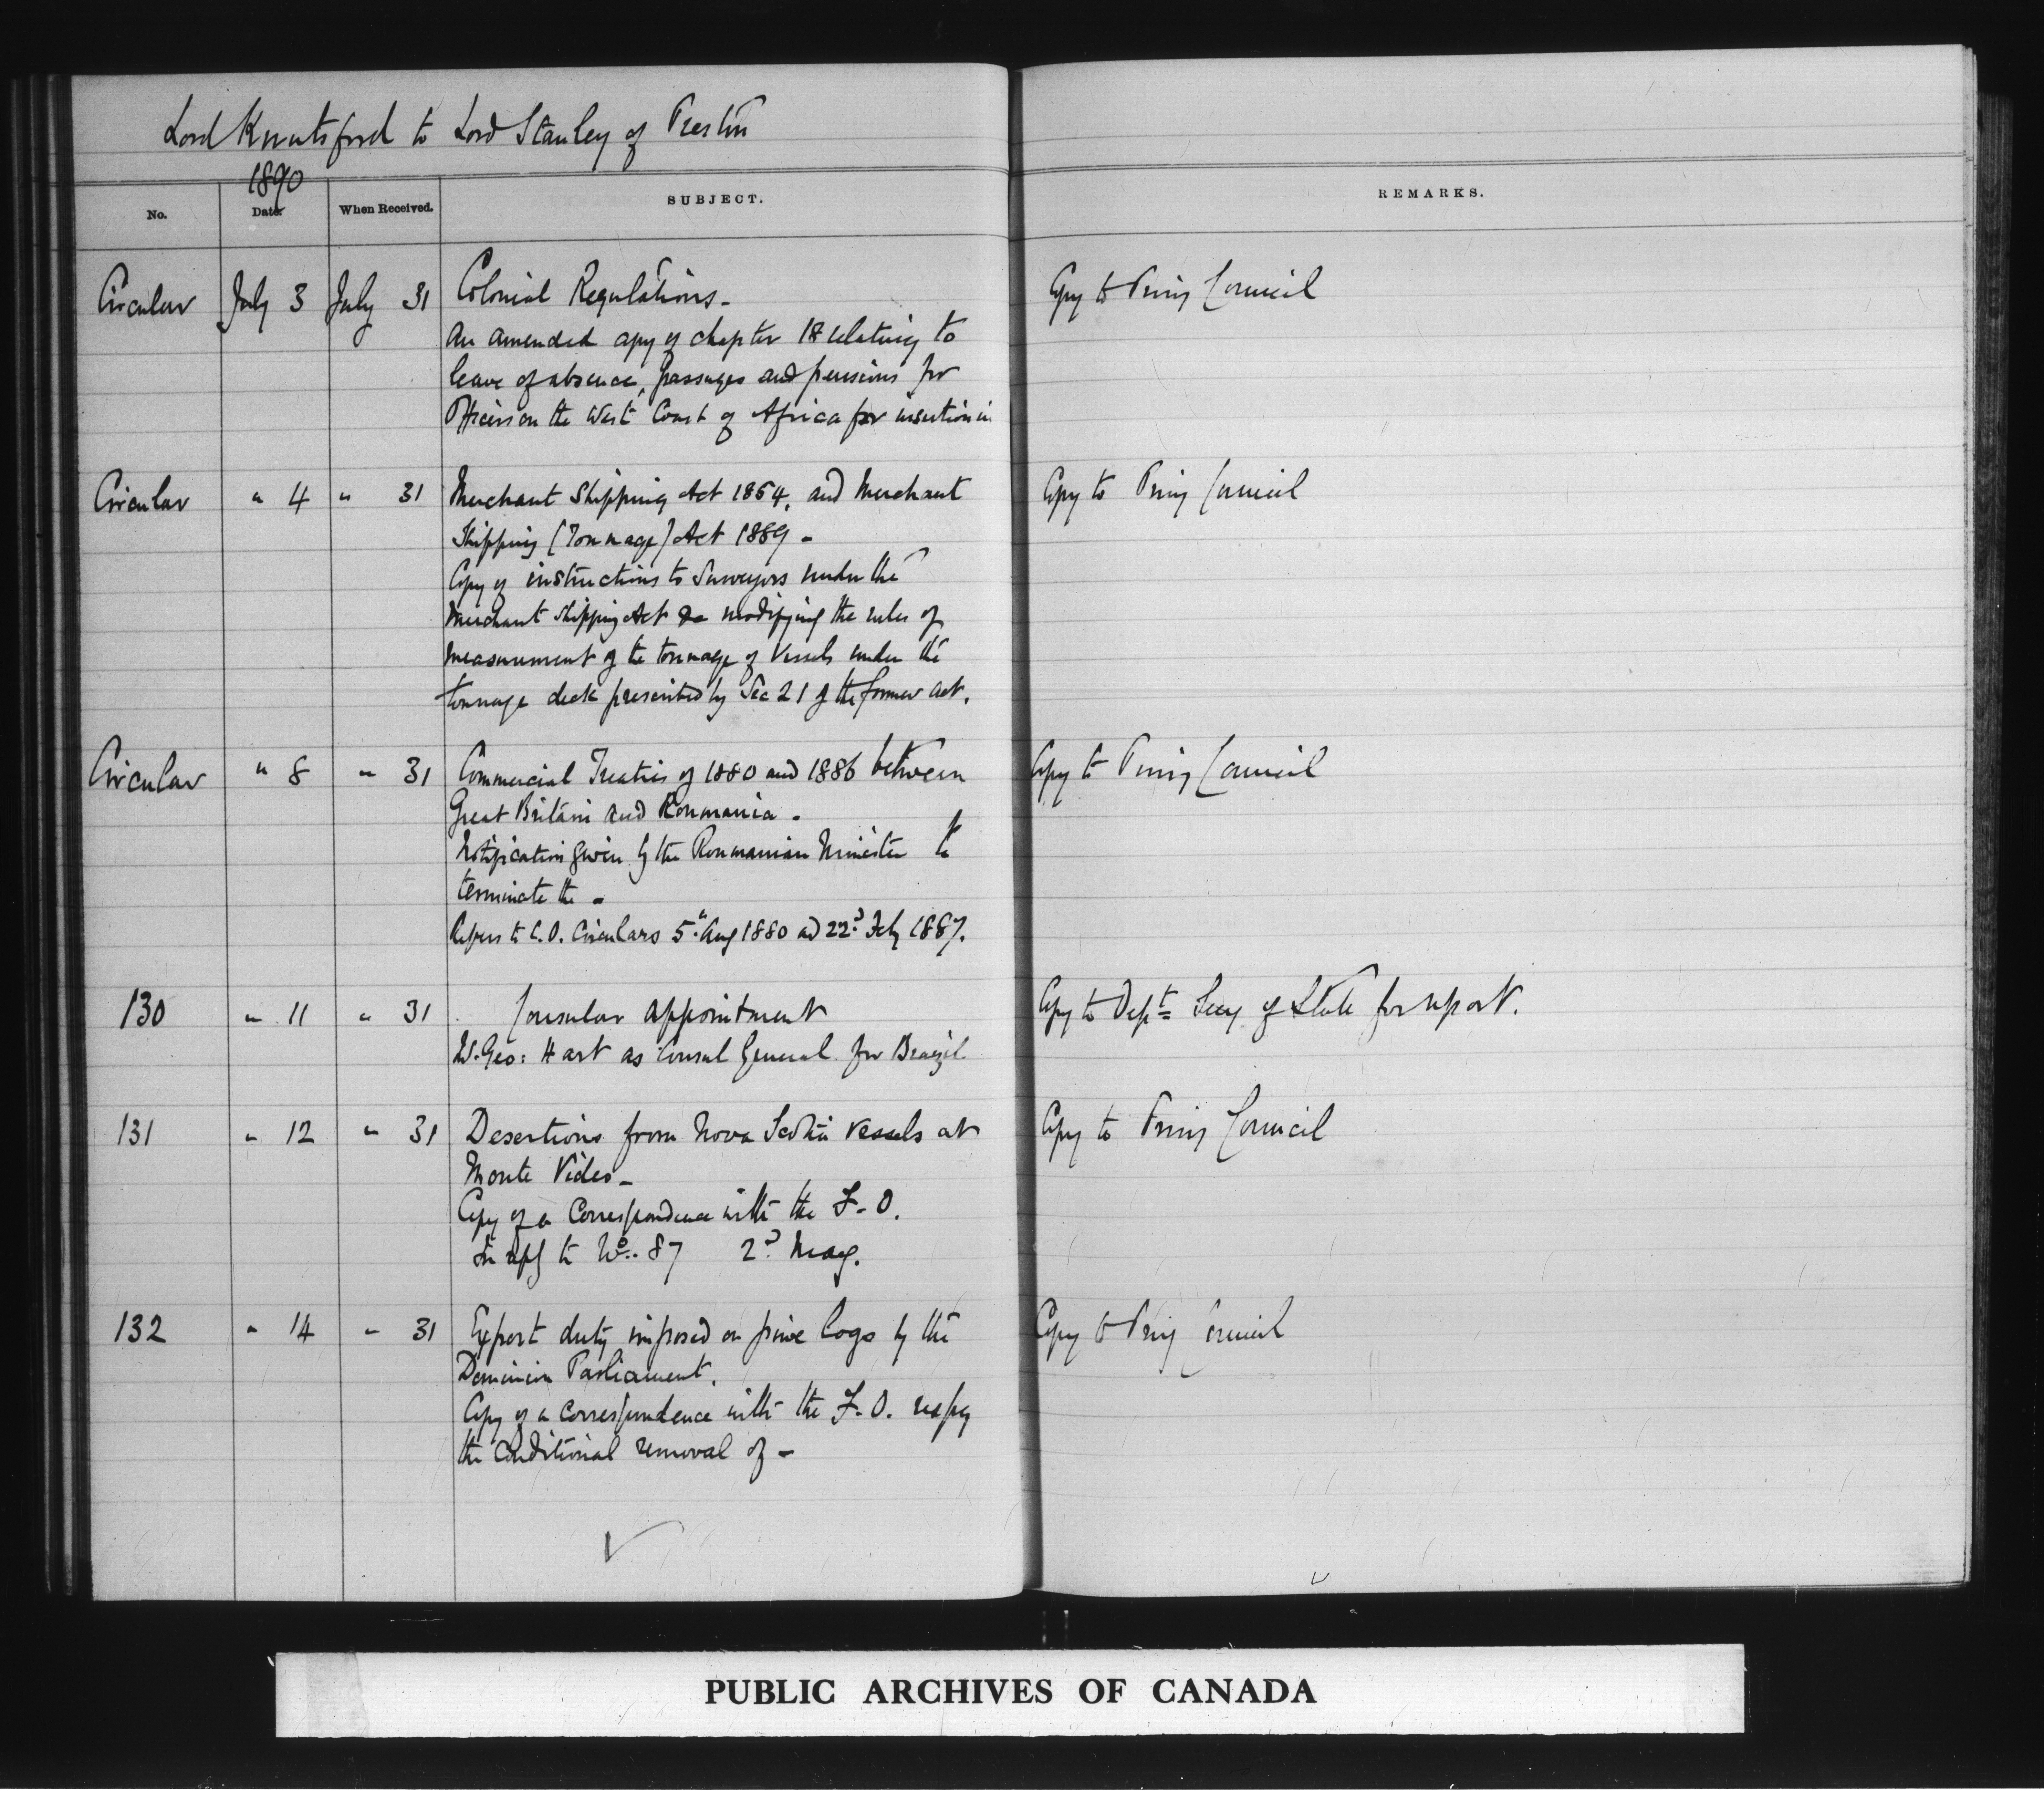 Lord Knutsford to Lord Stanley of Preston
1890
No. Date When Received. SUBJECT. REMARKS.
Circular July 3 July 31 Colonial Regulations - Copy to Privy Council
An amended copy of chapter 18 relating to
leave of absence, passages and pensions for
Officers on the West Coast of Africa for insertion in
Circular " 4 " 31 Merchant Shipping Act 1854, and Merchant Copy to Privy Council
Shipping (Tonnage) Act 1889 -
Copy of instructions to Surveyors under the
Merchant Shipping Act &c modifying the rules of
measurement of the tonnage of Vessels under the
tonnage deck prescribed by Sec 21 of the former act.
Circular " 8 " 31 Commercial Treaties of 1880 and 1886 between Copy to Privy Council
Great Britain and Roumania -
Notification given by the Roumanian Minister to
terminate the -
Refers to C.O. Circulars 5th Aug 1880 and 22d Feby 1887.
130 " 11 " 31 Consular appointment Copy to Dept Secy of State for report.
Geo: Hart as Consul General for Brazil
131 " 12 " 31 Desertions from Nova Scotia vessels at Copy to Privy Council
Monte Video -
Copy of a Correspondence with the F.O.
In reply to No. 87 2d May.
132 " 14 " 31 Export duty imposed on pine logs by the Copy to Privy Council
Dominion Parliament.
Copy of a correspondence with the F.O. respg
the Conditional removal of -
PUBLIC ARCHIVES OF CANADA